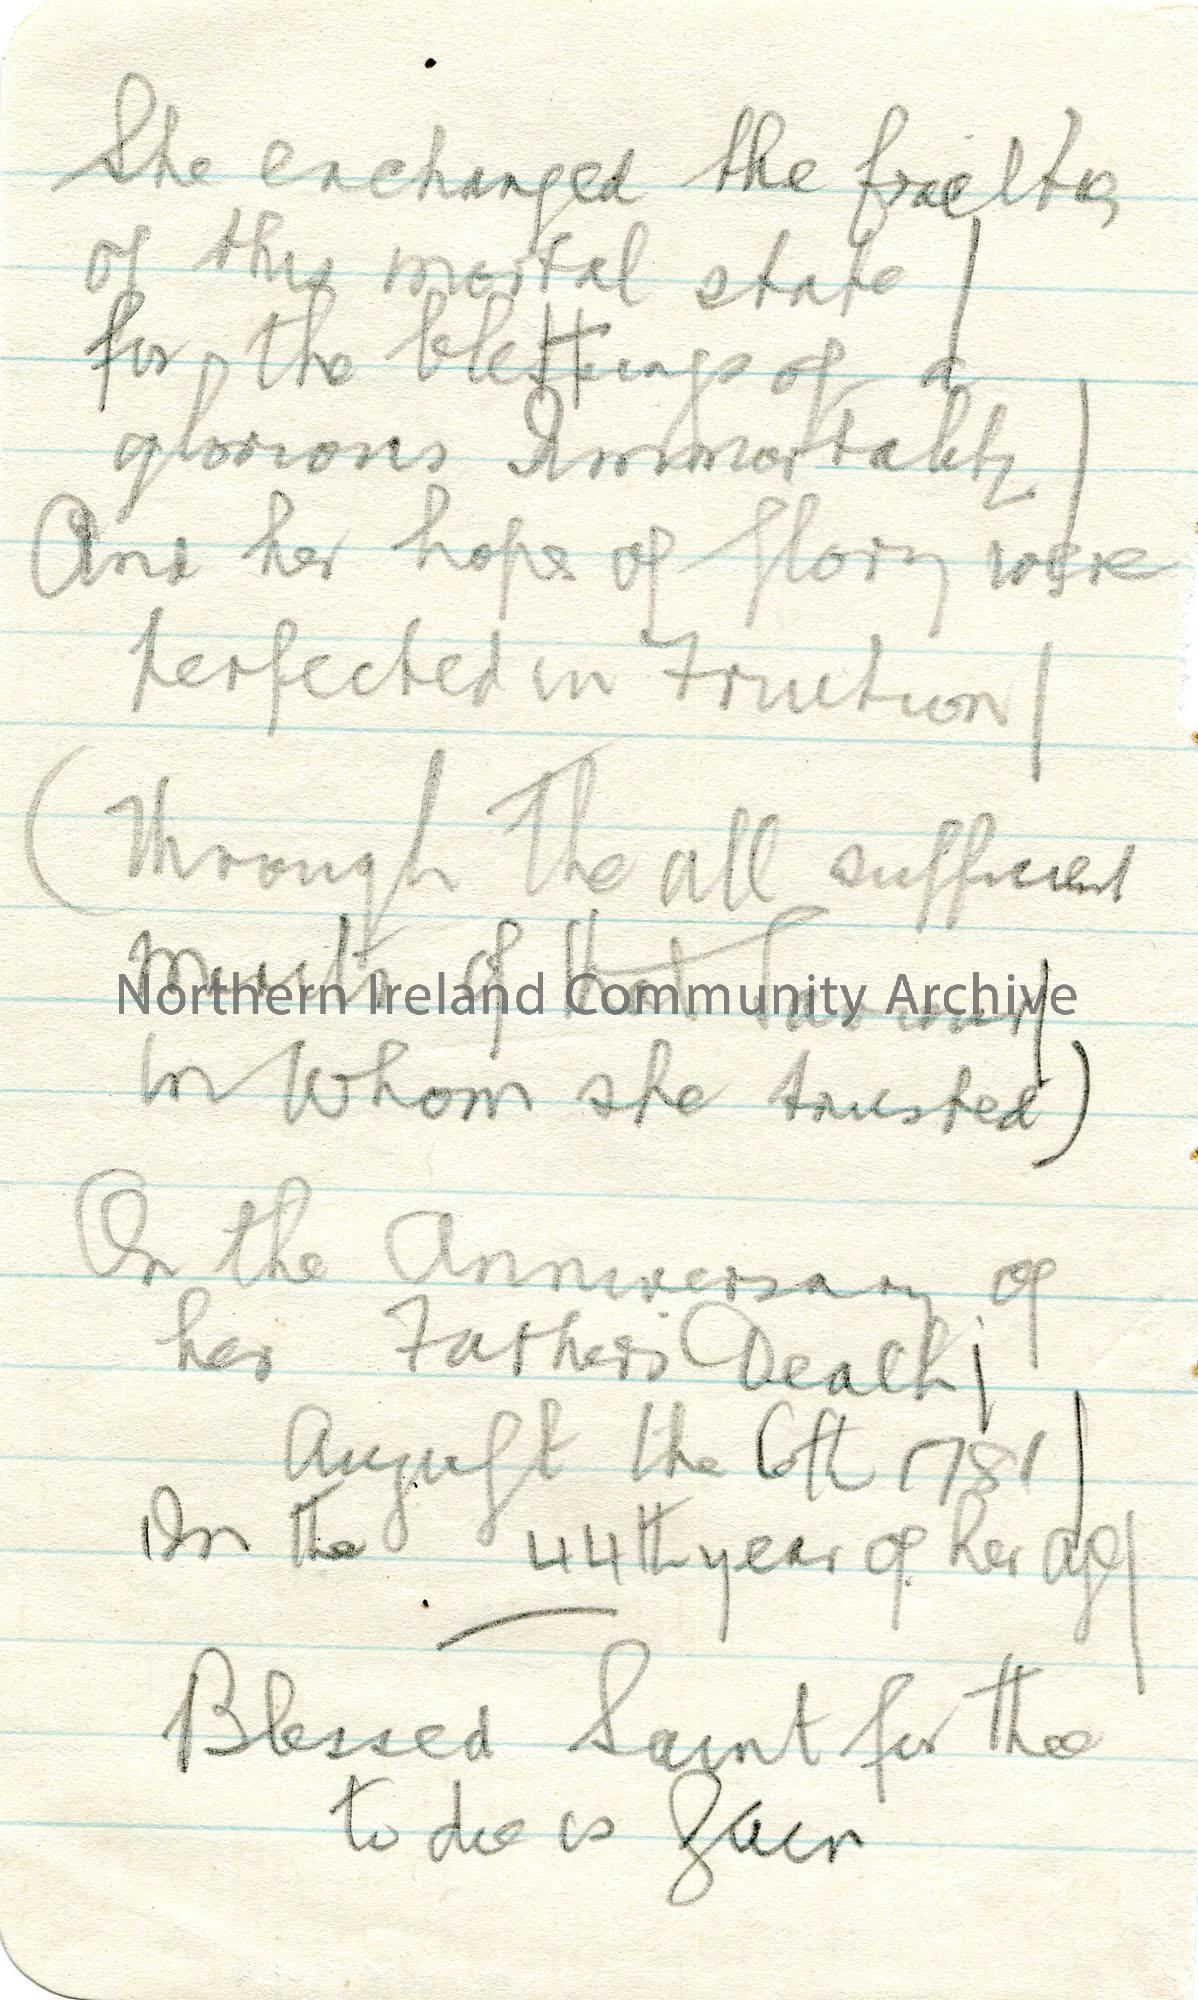 She exchanged the frailties
of this mortal state |
for the bleſſings of a
glorious Immortality |
And her hopes of Glory were
perfected in Fruition |
(Through the all sufficient
merits of that Saviour |
in Whom she trusted)
On the Anniversary of
her Father's Death; |
Auguſt the 6th 1781 |
In the 44th year of her age |
Blessed Saint for thee
to die is Gain
Northern Ireland Community Archive